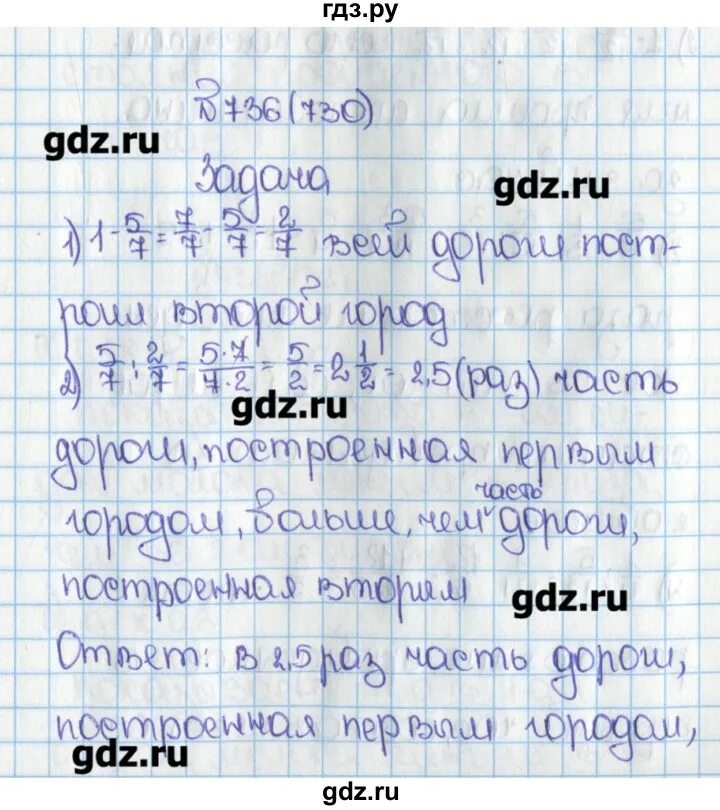 гдз.ру
№736(730)
gdz.ru
Задача
gdz.ru
1) 1 - 5/7 = 7/7 - 5/7 = 2/7 всей дороги пост-
роил второй город
2) 5/7 : 2/7 = 5·7/7·2 = 5/2 = 2 1/2 = 2,5 (раз) часть
gdz.ru
дороги, построенная первым
часть
городом, больше, чем дороги,
построенная вторым
gdz.ru
Ответ: в 2,5 раз часть дороги,
построенная первым городом,
gdz.ru
gdz.ru